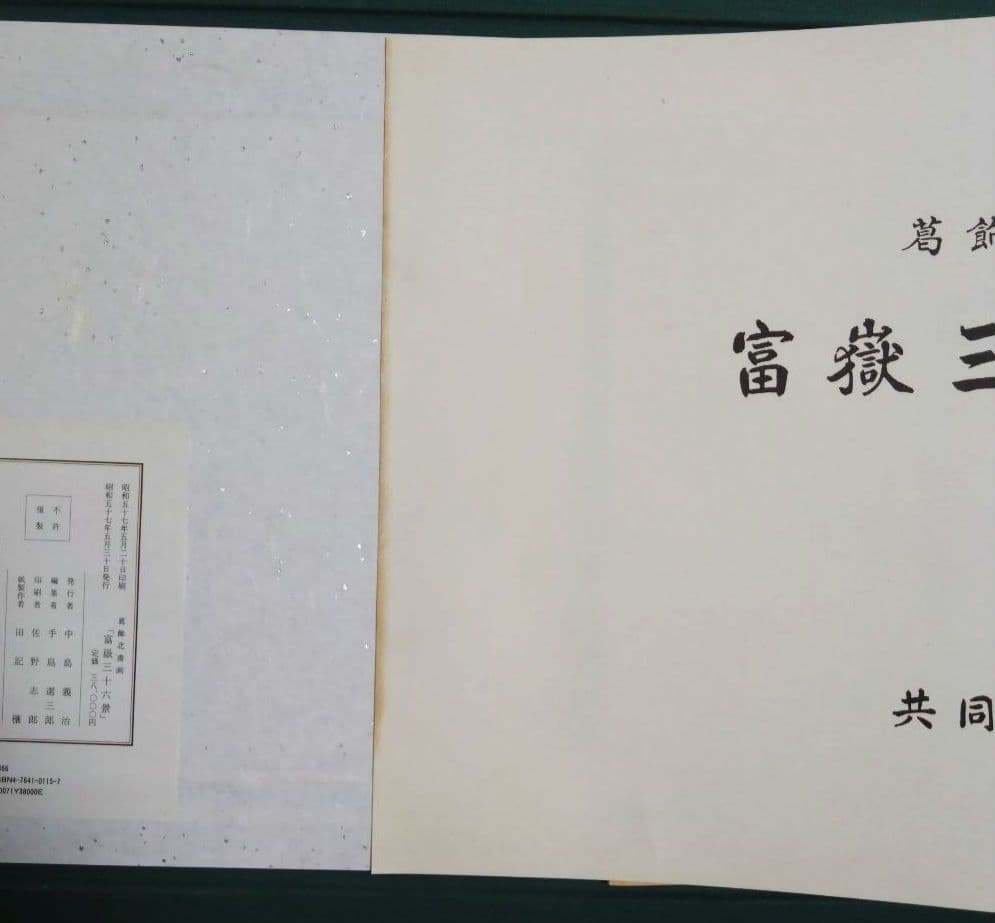 葛飾
富嶽三
共同
昭和五十七年五月二十日印刷
昭和五十七年五月三十日発行
葛飾北斎画
「富嶽三十六景」
定価 三八、〇〇〇円
発行者 中島義治
編集者 手島選三郎
印刷者 佐野志郎
紙製作者 田記
不許
複製
066
SBN4-7641-0115-7
0071Y38000E